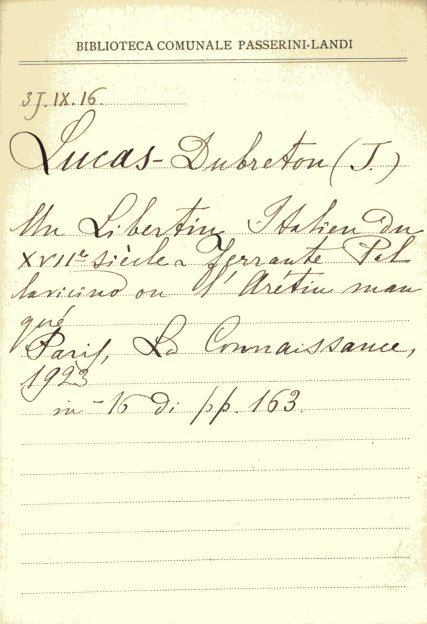 BIBLIOTECA COMUNALE PASSERINI-LANDI
3J.IX.16.
Lucas-Dubreton (J.)
Un Libertin Italien du
XVIIe siècle Ferrante Pal
lavicino ou l'Arétin man
qué
Paris, La Connaissance,
1923
in-16 di pp. 163.